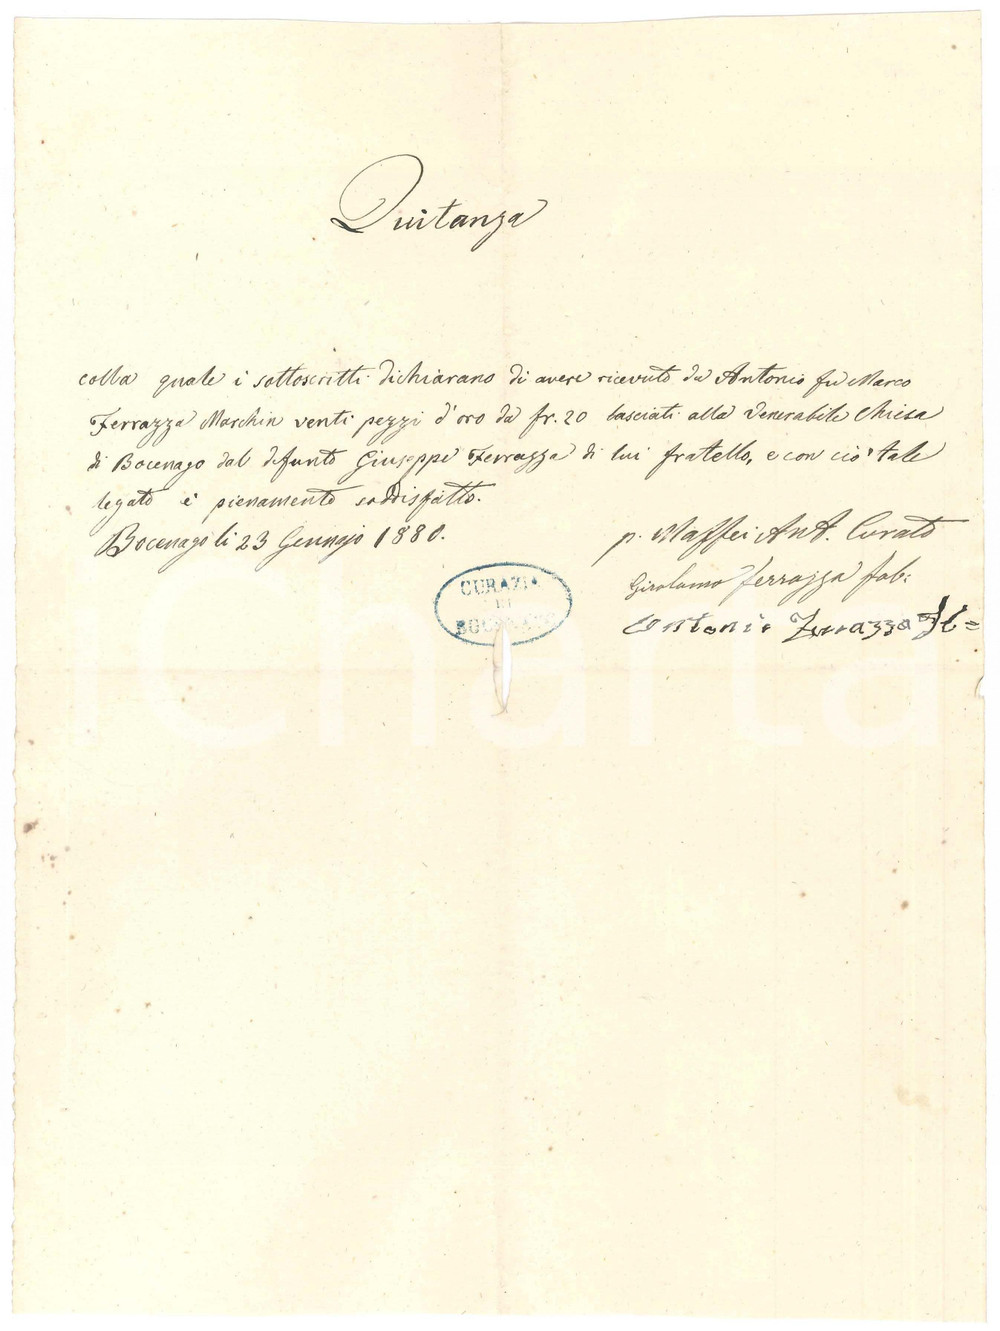 Quitanza
colla quale i sottoscritti dichiarano di avere ricevuto da Antonio fu Marco
Ferrazza Marchin venti pezzi d'oro da fr. 20 lasciati alla Venerabile Chiesa
di Bocenago dal defunto Giuseppe Ferrazza di lui fratello, e con ciò tale
legato è pienamente soddisfatto.
Bocenago li 23 Gennajo 1880.
p. Maffei Ant. Curato
Girolamo Ferrazza fab:
Antonio Ferrazza
CURAZIA
DI
BOCENAGO
Charta